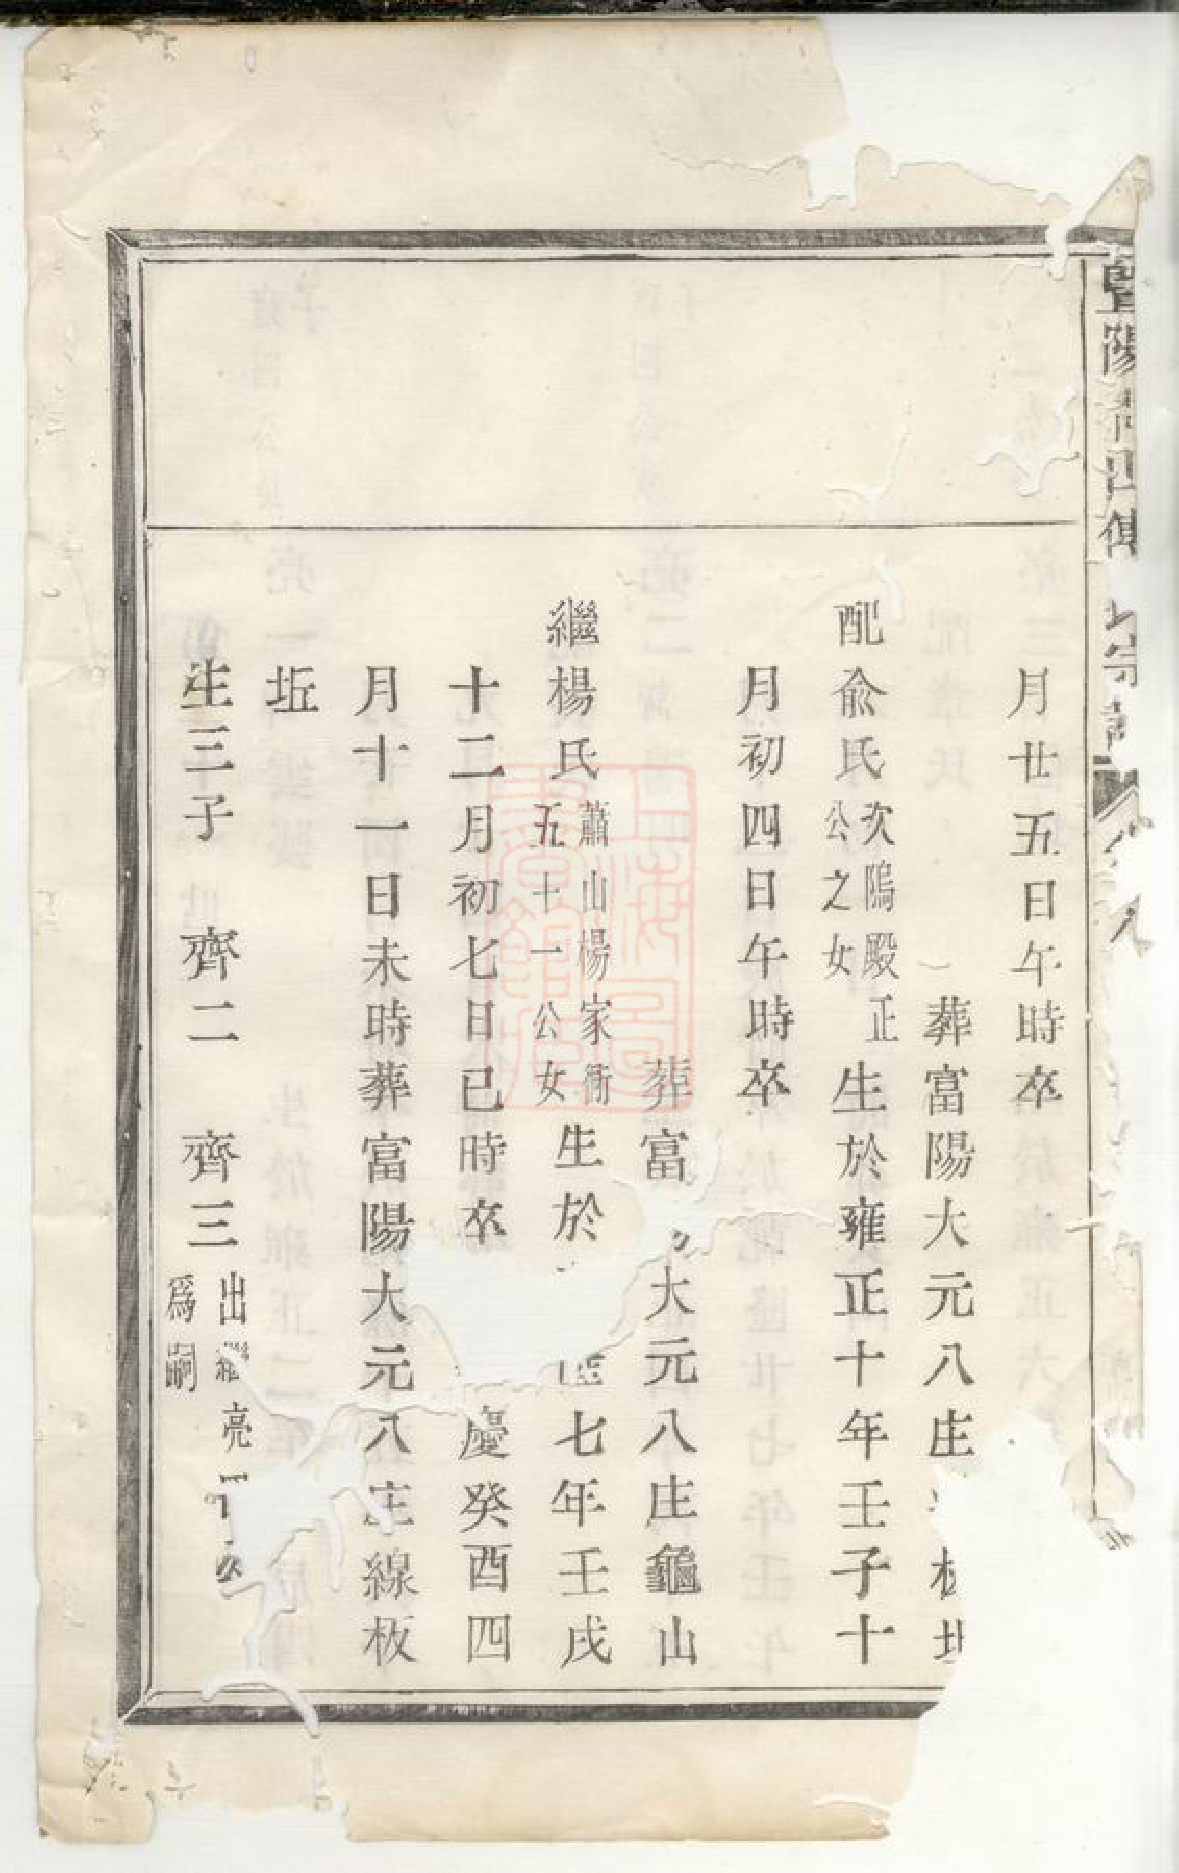 暨陽
月廿五日午時卒
葬富陽大元八庄
配俞氏
次隖殿正
公之女
生於雍正十年壬子十
月初四日午時卒
葬富大元八庄龜山
繼楊氏
蕭山楊家衖
五十一公女
生於七年壬戌
十二月初七日巳時卒
慶癸酉四
月十一日未時葬富陽大元八庄線板
坵
生三子 齊二 齊三
出繼亮
爲嗣